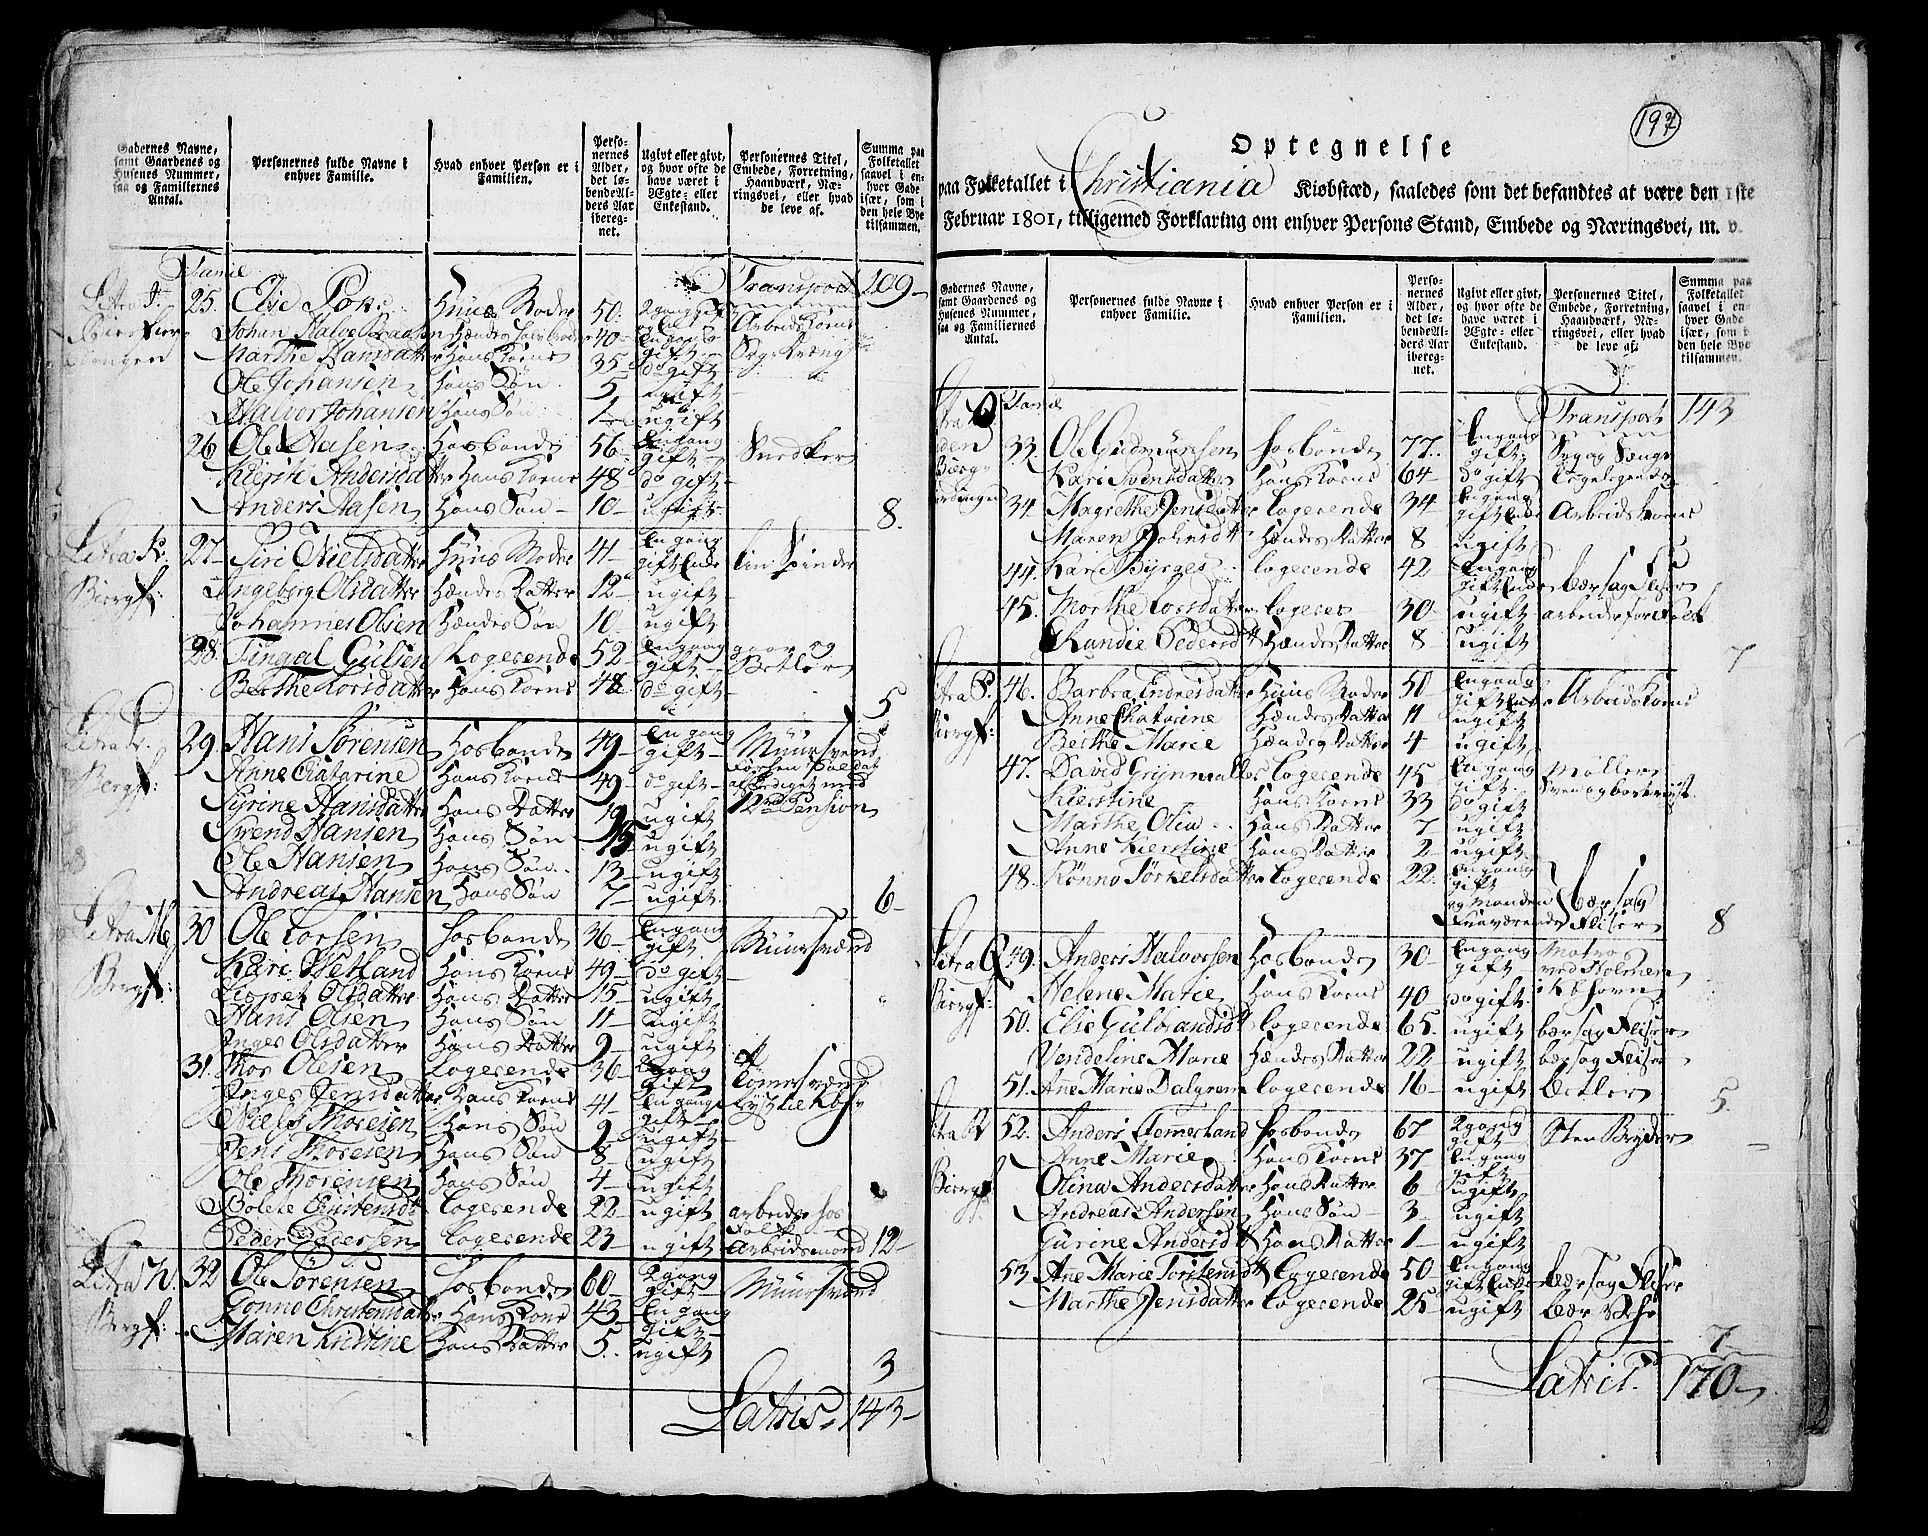 Gadernes Navne, samt Gaardenes og Husenes Nummer, saa og Familiernes Antal.
Personernes fulde Navne i enhver Familie.
Hvad enhver Person er i Familien.
Personernes Alder, det løbende Alders Aar iberegnet.
Ugivt eller givt, og hvor ofte de have været i Ægte- eller Enkestand.
Personernes Titel, Embede, Forretning, Haandværk, Næringsvei, eller hvad de leve af.
Summa paa Folketallet saavel i enhver Gade især, som i den hele Bye tilsammen.
Famil Transport 109
25. Elie Huus Moder 50. 2 gang gift
Johan 40 En gang gift Arbeids
Marthe Hansdatter Hans Kone 35 do gift
Ole Johansen Hans Søn 5 ugift
Halvor Johansen Hans Søn 1 ugift
26 Ole Aasen Hosbonde 56 En gang gift Snedker
Kierst Andersdatter Hans Kone 48 do gift
Anders Aasen Hans Søn 10 ugift 8.
Litra K. Biergf: 27 Siri Nielsdatter Huus Moder 41 En gang gift Enke Lin Spinder
Ingeborg Olsdatter Hændes Datter 12 ugift
Johannes Olsen Hændes Søn 10 ugift
28. Fingal Gulsen Logerende 52 En gang gift gaar og Betler
Berthe Larsdatter Hans Kone 48 do gift 5
Litra L. Bergf: 29 Hans Sørensen Hosbonde 49 En gang gift Muursvend
Anne Catarine Hans Kone 49 do gift
Syrine Hansdatter Hans Datter 19 ugift Pension
Svend Hansen Hans Søn 15 ugift
Ole Hansen Hans Søn 13 ugift
Andreas Hansen Hans Søn 7 ugift 6
Litra M, Bergf: 30 Ole Larsen Hosbonde 36 Engang gift Muursvend
Kari Hetland Hans Kone 49 do gift
Lispet Olsdatter Hans Datter 15 ugift
Hans Olsen Hans Søn 11 ugift
Inger Olsdatter Hans Datter 9 ugift
31. Thor Olsen Logerende 36 2 gang gift Tømersvend
Inger Jensdatter Hans Kone 41 En gang gift
Niels Thoresen Hans Søn 9 ugift
Jens Thoresen Hans Søn 8 ugift
Ole Thoresen Hans Søn 4 ugift
Bolete Christensdt Logerende 22 ugift arbeider hos Folk
Peder Pedersen Logerende 23 ugift Arbeidsmand 12
Litra N. Bergf: 32 Ole Sørensen Hosbonde 60 2 gang gift Muursvend
Gonno Christensdatter Hans Kone 43 En gang gift
Maren Kristine Hans Datter 5. ugift 3
Latris 143
197
Optegnelse
paa Folketallet i Christiania Kiøbstæd, saaledes som det befandtes at være den 1ste
Februar 1801, tilligemed Forklaring om enhver Persons Stand, Embede og Næringsvei, m. v.
Gadernes Navne, samt Gaardenes og Husenes Nummer, saa og Familiernes Antal.
Personernes fulde Navne i enhver Familie.
Hvad enhver Person er i Familien.
Personernes Alder, det løbende Alders Aar iberegnet.
Ugivt eller givt, og hvor ofte de have været i Ægte- eller Enkestand.
Personernes Titel, Embede, Forretning, Haandværk, Næringsvei, eller hvad de leve af.
Summa paa Folketallet saavel i enhver Gade især, som i den hele Bye tilsammen.
Famil Transport 143
33. Ole Gudmundsen Hosbonde 77. Engang gift Syg og Senge
Kari Svensdatter Hans Kone 64 do gift
34. Magrethe Jensdatter Logerende 34 Engang gift Enke Arbeids Kone
Maren Johnsdt Hændes Datter 8 ugift
44. Kari Byrges Logerende 42 Engang gift Enke bær sag Fliser
45. Marthe Larsdatter Logerer 30 ugift arbeider for Folk
Randie Pedersdt Hændes Datter 8 ugift 7
Litra P. Biergf: 46. Barbra Endresdatter Huus Moder 50 Engang gift Enke Arbeids Kone
Anne Catarine Hændes Datter 11 ugift
Berthe Marie Hændes Datter 4 ugift
47. David Grynmaller Logerende 45 Engang gift Møller
Kierstine Hans Kone 33 do gift
Marthe Olia Hans Datter 7 ugift
Anne Kierstine Hans Datter 2 ugift
48. Rønno Torkelsdatter Logerende 22. Engang gift og Manden Fraværende bær sag Fliser 8
Litra Q Biergf: 49. Anders Halvorsen Hosbonde 30 Engang gift Matros ved Holmen i Kbhavn
Helene Marie Hans Kone 40 do gift
50. Elie Gulbrandsdt Logerende 65. ugift bær sag Fliser
Vendeline Marie Hændes Datter 22 ugift bær sag Fliser
51. Ane Marie Dalgren Logerende 16 ugift Betler 5.
Litra R Biergf: 52. Anders Hosbonde 67 2 gang gift Sten Bryder
Anne Marie Hans Kone 37 Engang gift
Olina Andersdatter Hans Datter 6 ugift
Andreas Andersen Hans Søn 3 ugift
Gurine Andersdt Hans Datter 1 ugift
53. Ane Marie Torstensdt Logerende 50 Engang gift Enke bær sag Fliser
Marthe Jensdatter Logerende 25 ugift bær 7
Latris 170